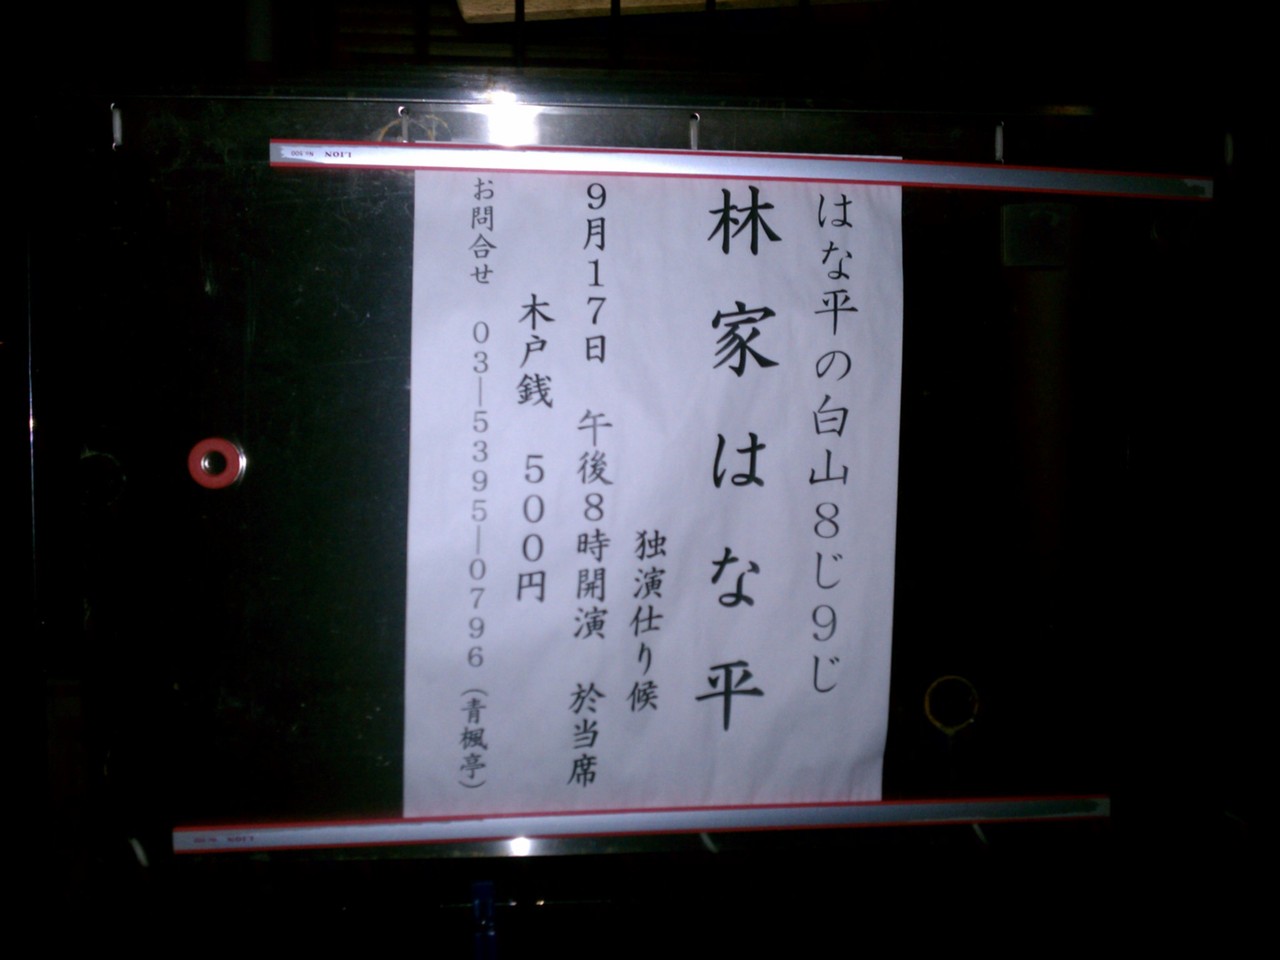 はな平の白山8じ9じ
林家はな平
独演仕り候
9月17日　午後8時開演　於当席
木戸銭　500円
お問合せ　03—5395—0796（青楓亭）
LION No.500
LION